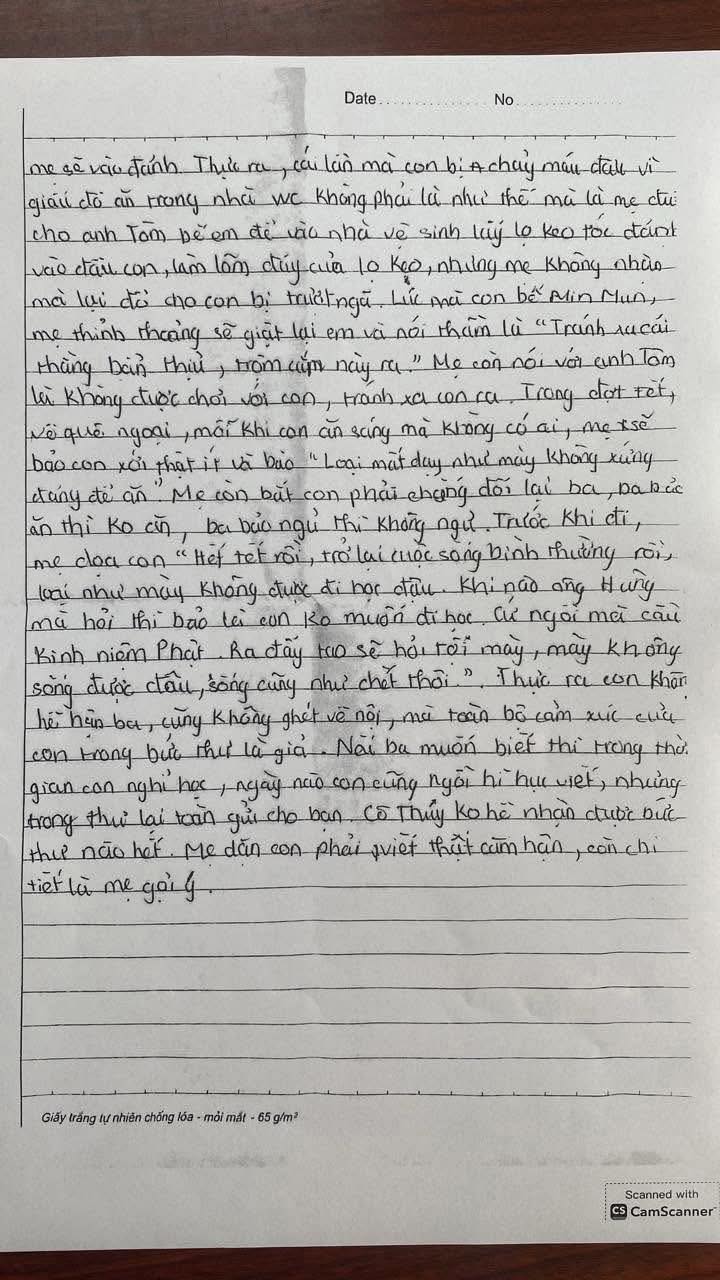 Date No
mẹ sẽ vào đánh. Thực ra, cái lần mà con bị chảy máu đầu vì
giấu đồ ăn trong nhà wc không phải là như thế mà là mẹ đưa
cho anh Tôm bế em để vào nhà vệ sinh lấy lọ keo tóc đánh
vào đầu con, làm lõm đáy của lọ keo, nhưng mẹ không nhận
mà lại đổ cho con bị trượt ngã. Lúc mà con bế Min Mun,
mẹ thỉnh thoảng sẽ giật lại em và nói thầm là "Tránh xa cái
thằng bẩn thỉu, trộm cắp này ra." Mẹ còn nói với anh Tôm
là không được chơi với con, tránh xa con ra. Trong đợt tết,
về quê ngoại, mỗi khi con ăn sáng mà không có ai, mẹ sẽ
bảo con xới thật ít và bảo "Loại mất dạy như mày không xứng
đáng để ăn". Mẹ còn bắt con phải chống đối lại ba, ba bảo
ăn thì ko ăn, ba bảo ngủ thì không ngủ. Trước khi đi,
mẹ dọa con "Hết tết rồi, trở lại cuộc sống bình thường rồi,
loại như mày không được đi học đâu. Khi nào ông Hưng
mà hỏi thì bảo là con ko muốn đi học. Cứ ngồi mà cầu
kinh niệm Phật. Ra đấy tao sẽ hỏi tội mày, mày không
sống được đâu, sống cũng như chết thôi.". Thực ra con không
hề hận ba, cũng không ghét về nội, mà toàn bộ cảm xúc của
con trong bức thư là giả. Nói ba muốn biết thì trong thời
gian con nghỉ học, ngày nào con cũng ngồi hì hục viết, nhưng
trong thư lại toàn gửi cho bạn. Cô Thủy ko hề nhận được bức
thư nào hết. Mẹ dặn con phải viết thật căm hận, còn chi
tiết là mẹ gợi ý.
Giấy trắng tự nhiên chống lóa - mỏi mắt - 65 g/m²
Scanned with
CS CamScanner